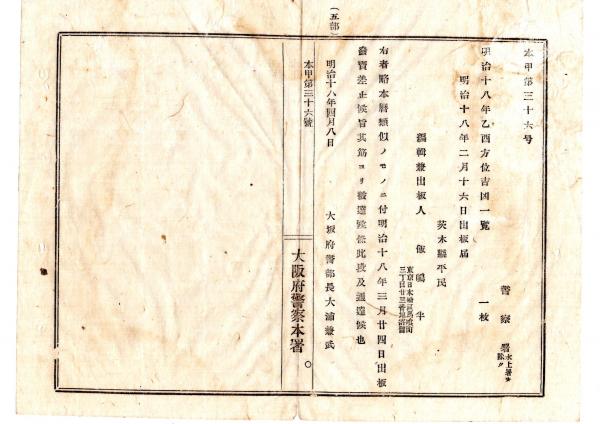 本甲第三十六号
警察署 水上署ヲ除ク
明治十八年乙酉方位吉凶一覧 一枚
明治十八年二月十六日出板届
茨木縣平民
編輯兼出板人 飯嶋半
東京日本橋區馬喰町
三丁目廿三番地
右者略本暦類似ノモノニ付明治十八年三月廿四日出板
發賣差止候旨其筋ヨリ被達候條此段及通達候也
明治十八年四月八日
大坂府警部長大浦兼武
本甲第三十六號
大阪府警察本署
(五部)